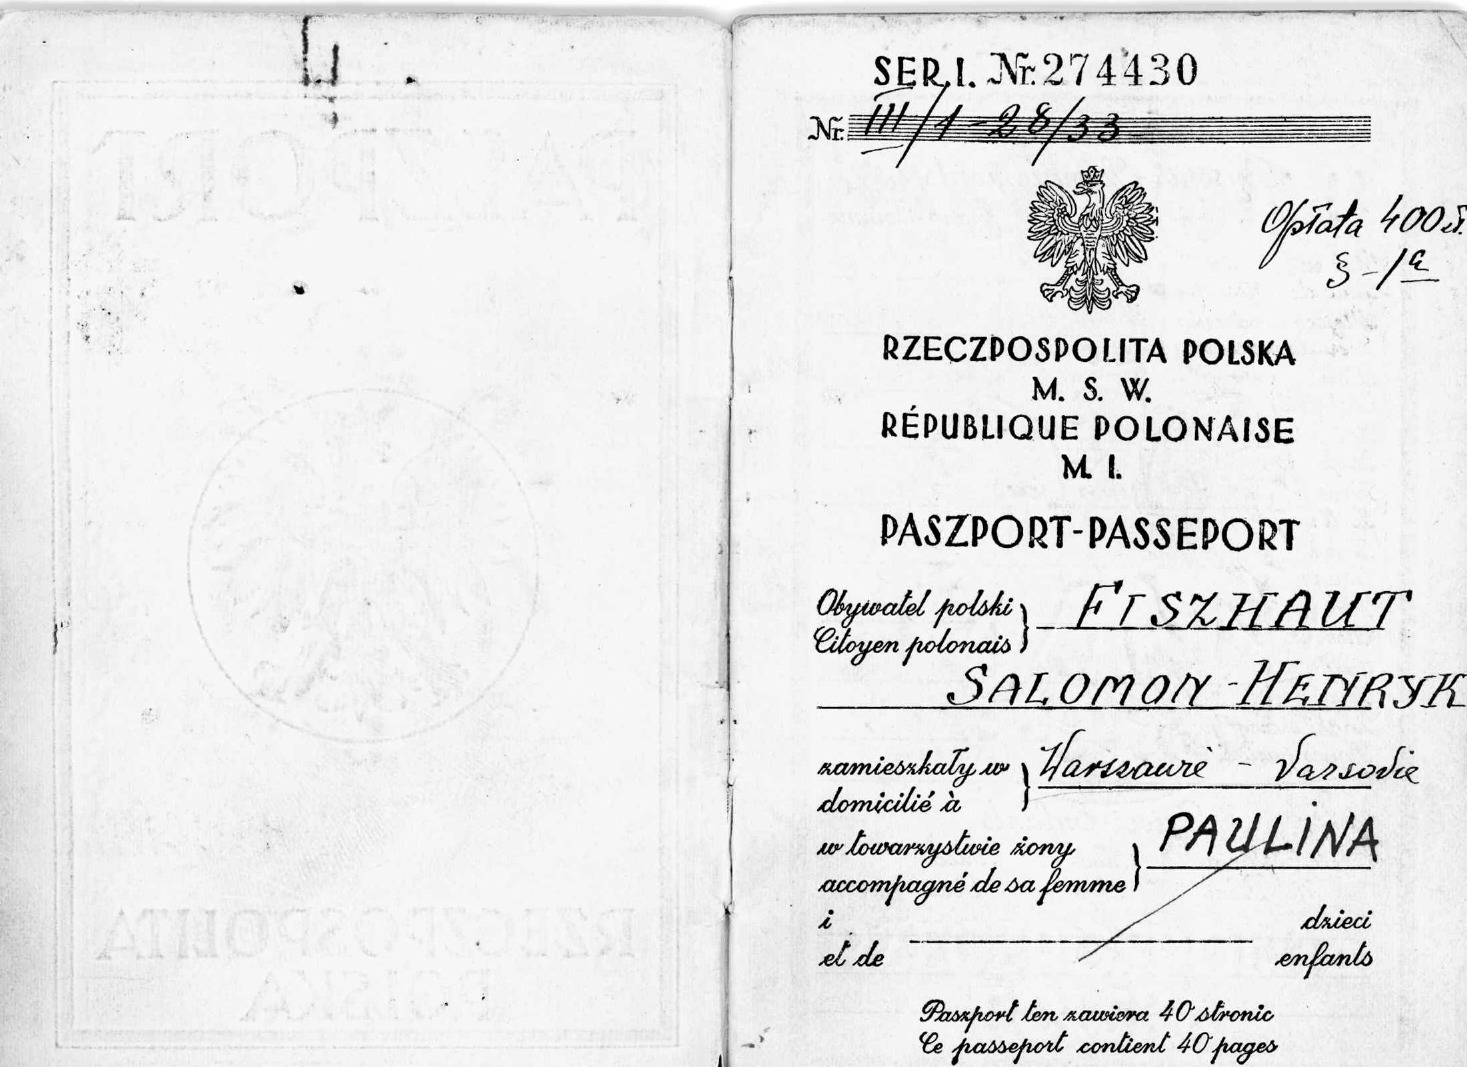 SER. I. Nr. 274430
Nr. III/1-28/33
Opłata 400 zł.
§ - 1a
RZECZPOSPOLITA POLSKA
M. S. W.
RÉPUBLIQUE POLONAISE
M. I.
PASZPORT-PASSEPORT
Obywatel polski
Citoyen polonais
FISZHAUT
SALOMON-HENRYK
zamieszkały w
domicilié à
Warszawie - Varsovie
w towarzystwie żony
accompagné de sa femme
PAULINA
i dzieci
et de enfants
Paszport ten zawiera 40 stronic
Ce passeport contient 40 pages
PASZPORT
RZECZPOSPOLITA
POLSKA